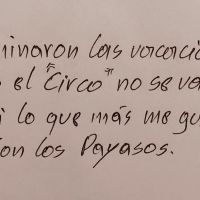 minaron las vacacio
el "Circo" no se va
i lo que más me gu
on los Payasos.